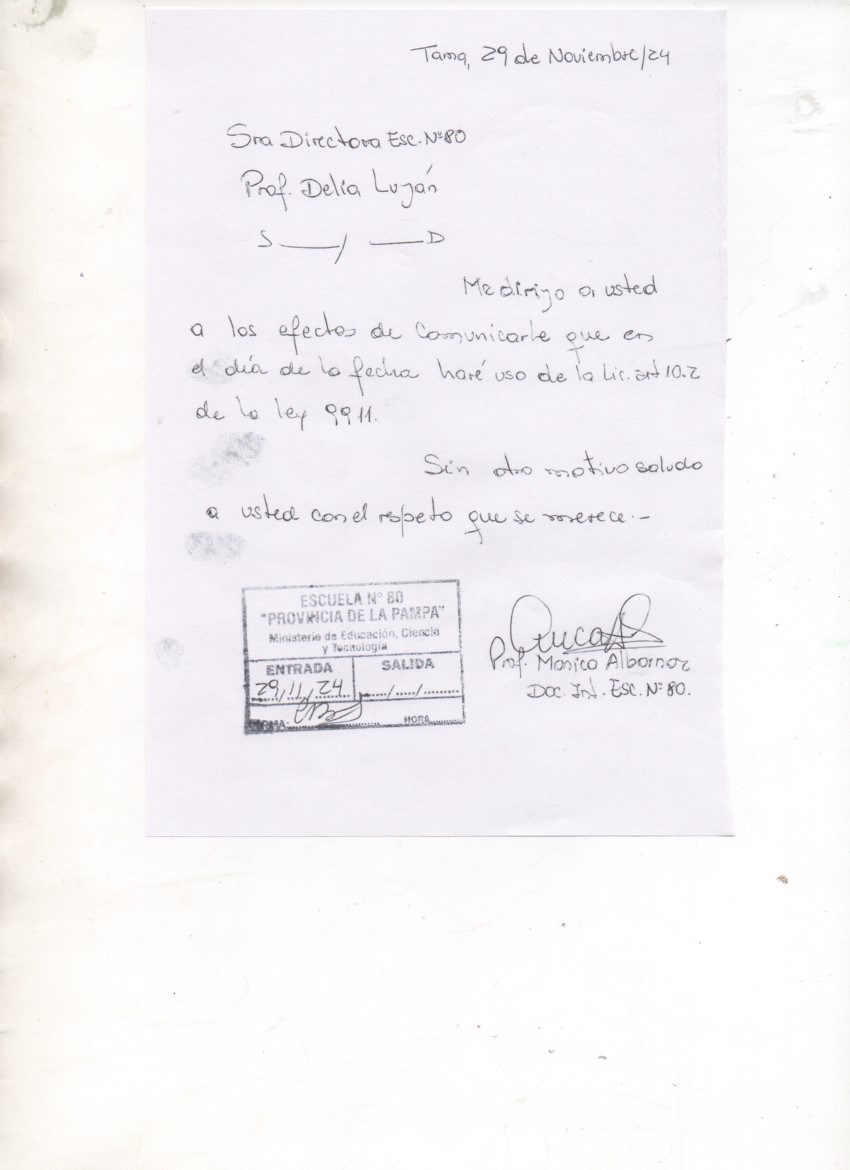 Tama, 29 de Noviembre/24
Sra Directora Esc. Nº 80
Prof. Delia Luján
S ——/ ——D
Me dirijo a usted
a los efectos de comunicarle que en
el día de la fecha haré uso de la Lic. art 10.2
de la ley 9911.
Sin otro motivo saludo
a usted con el respeto que se merece.-
ESCUELA Nº 80
"PROVINCIA DE LA PAMPA"
Ministerio de Educación, Ciencia
y Tecnología
ENTRADA SALIDA
29/11/24 ..../..../.........
FIRMA: HORA
Prof. Monica Albornoz
Doc. Int. Esc. Nº 80.